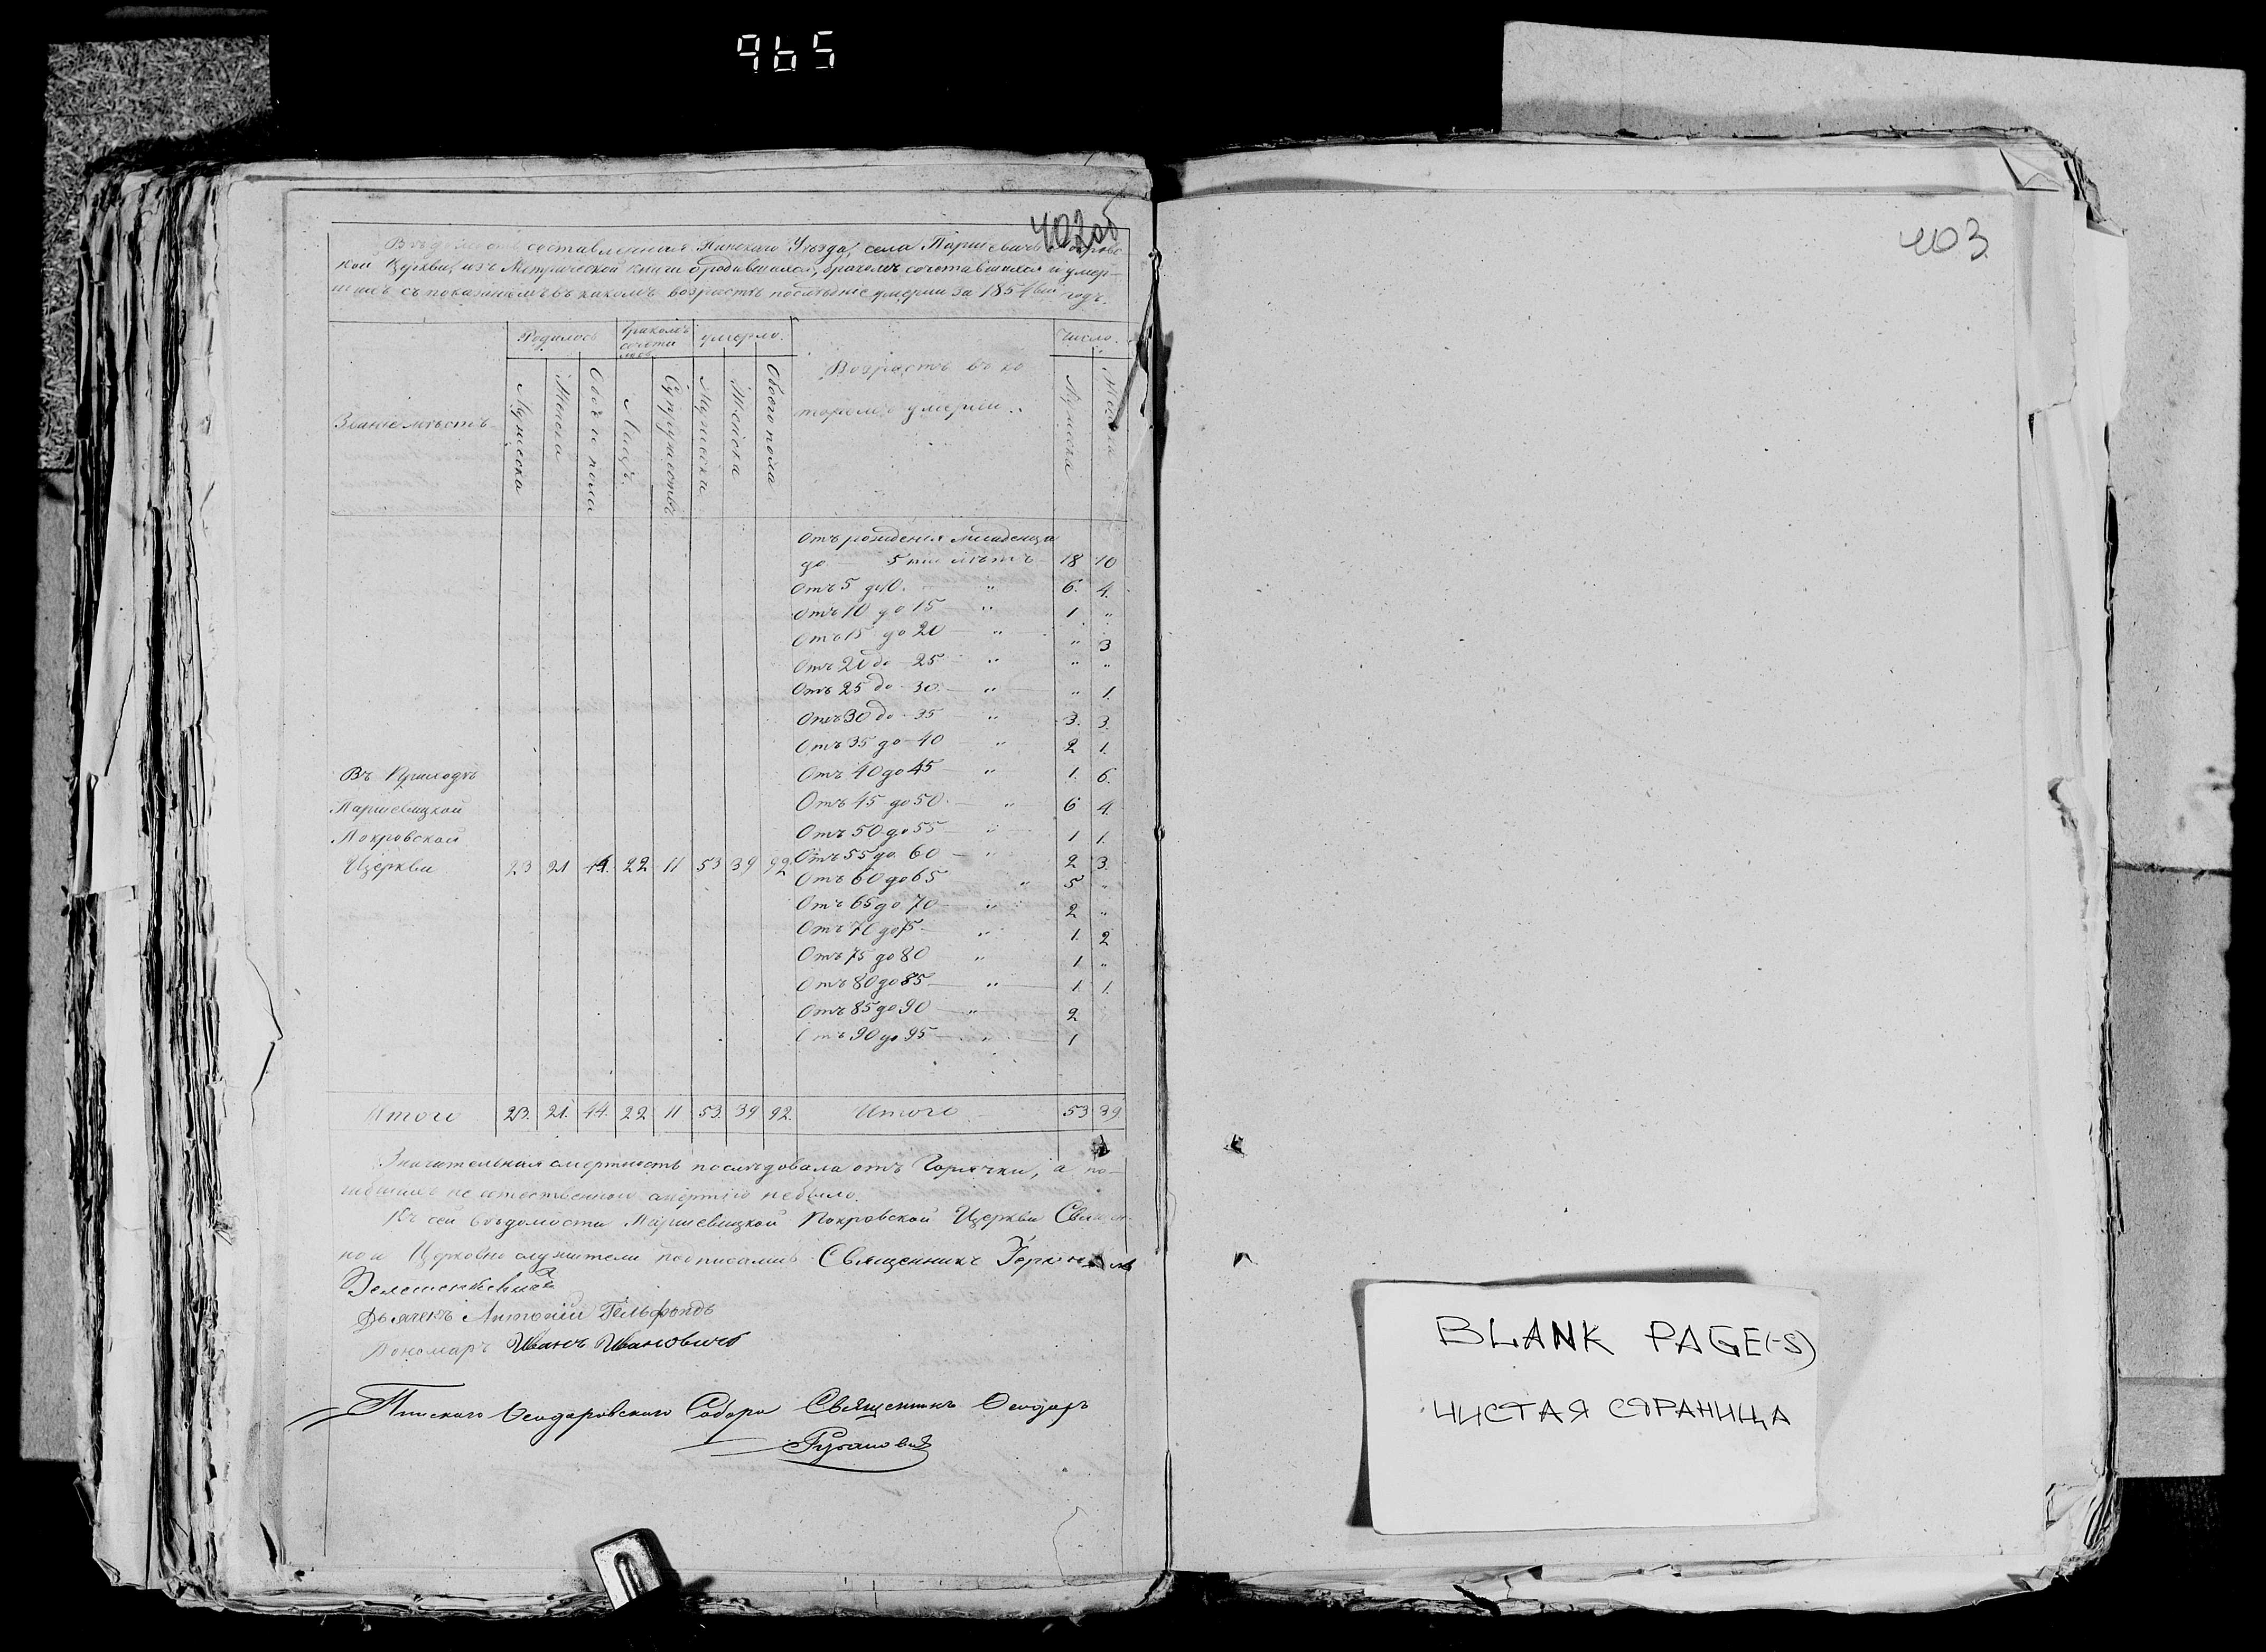 965
402об
Вѣдомость составленная Пинскаго Уѣзда, села Паршевичъ Покровс-
кой Церкви, изъ Метрической книги о родившихся, бракомъ сочетавшихся и умер-
шихъ съ показаніемъ въ какомъ возрастѣ послѣдніе умерли за 1854й годъ.
Званіе мѣстъ
Родилось
Бракомъ сочеталось
умерло.
Возрастъ въ ко
торомъ умерли..
Число.
Мужеска
Женска
Обоего пола
Лицъ.
Супружествъ
Мужеска
Женска
Обоего пола
Мужеска
Женска
Отъ рожденія младенца
до 5ти лѣтъ 18 10
Отъ 5 до 10. " 6. 4.
Отъ 10 до 15 " 1 "
Отъ 15 до 20 " " 3
Отъ 20 до 25 " " "
Отъ 25 до 30. " " 1.
Отъ 30 до 35 " 3. 3.
Отъ 35 до 40 " 2 1.
Отъ 40 до 45 " 1. 6.
Отъ 45 до 50. " 6 4.
Отъ 50 до 55 " 1 1.
Отъ 55 до 60 " 2 3.
Отъ 60 до 65 " 5 "
Отъ 65 до 70 " 2 "
Отъ 70 до 75 " 1. 2
Отъ 75 до 80 " 1 "
Отъ 80 до 85 " 1 1.
Отъ 85 до 90 " 2
Отъ 90 до 95 " 1
Въ Приходѣ
Паршевицкой
Покровской
Церкви 23 21 44. 22 11 53 39 92.
Итого 23. 21. 44. 22 11 53. 39 92. Итого 53 39.
Значительная смертность послѣдовала отъ Горячки, а по-
гибшихъ не естественною смертію небыло.
Къ сей вѣдомости Паршевицкой Покровской Церкви Священ-
но и Церковно служители подписались Священникъ
Дьячекъ Антоній Гельфондъ
Пономарь Иванъ Ивановичъ
Пинскаго Ѳеодоровскаго Собора Священникъ Ѳеодоръ
403
BLANK PAGE(-S)
ЧИСТАЯ СТРАНИЦА